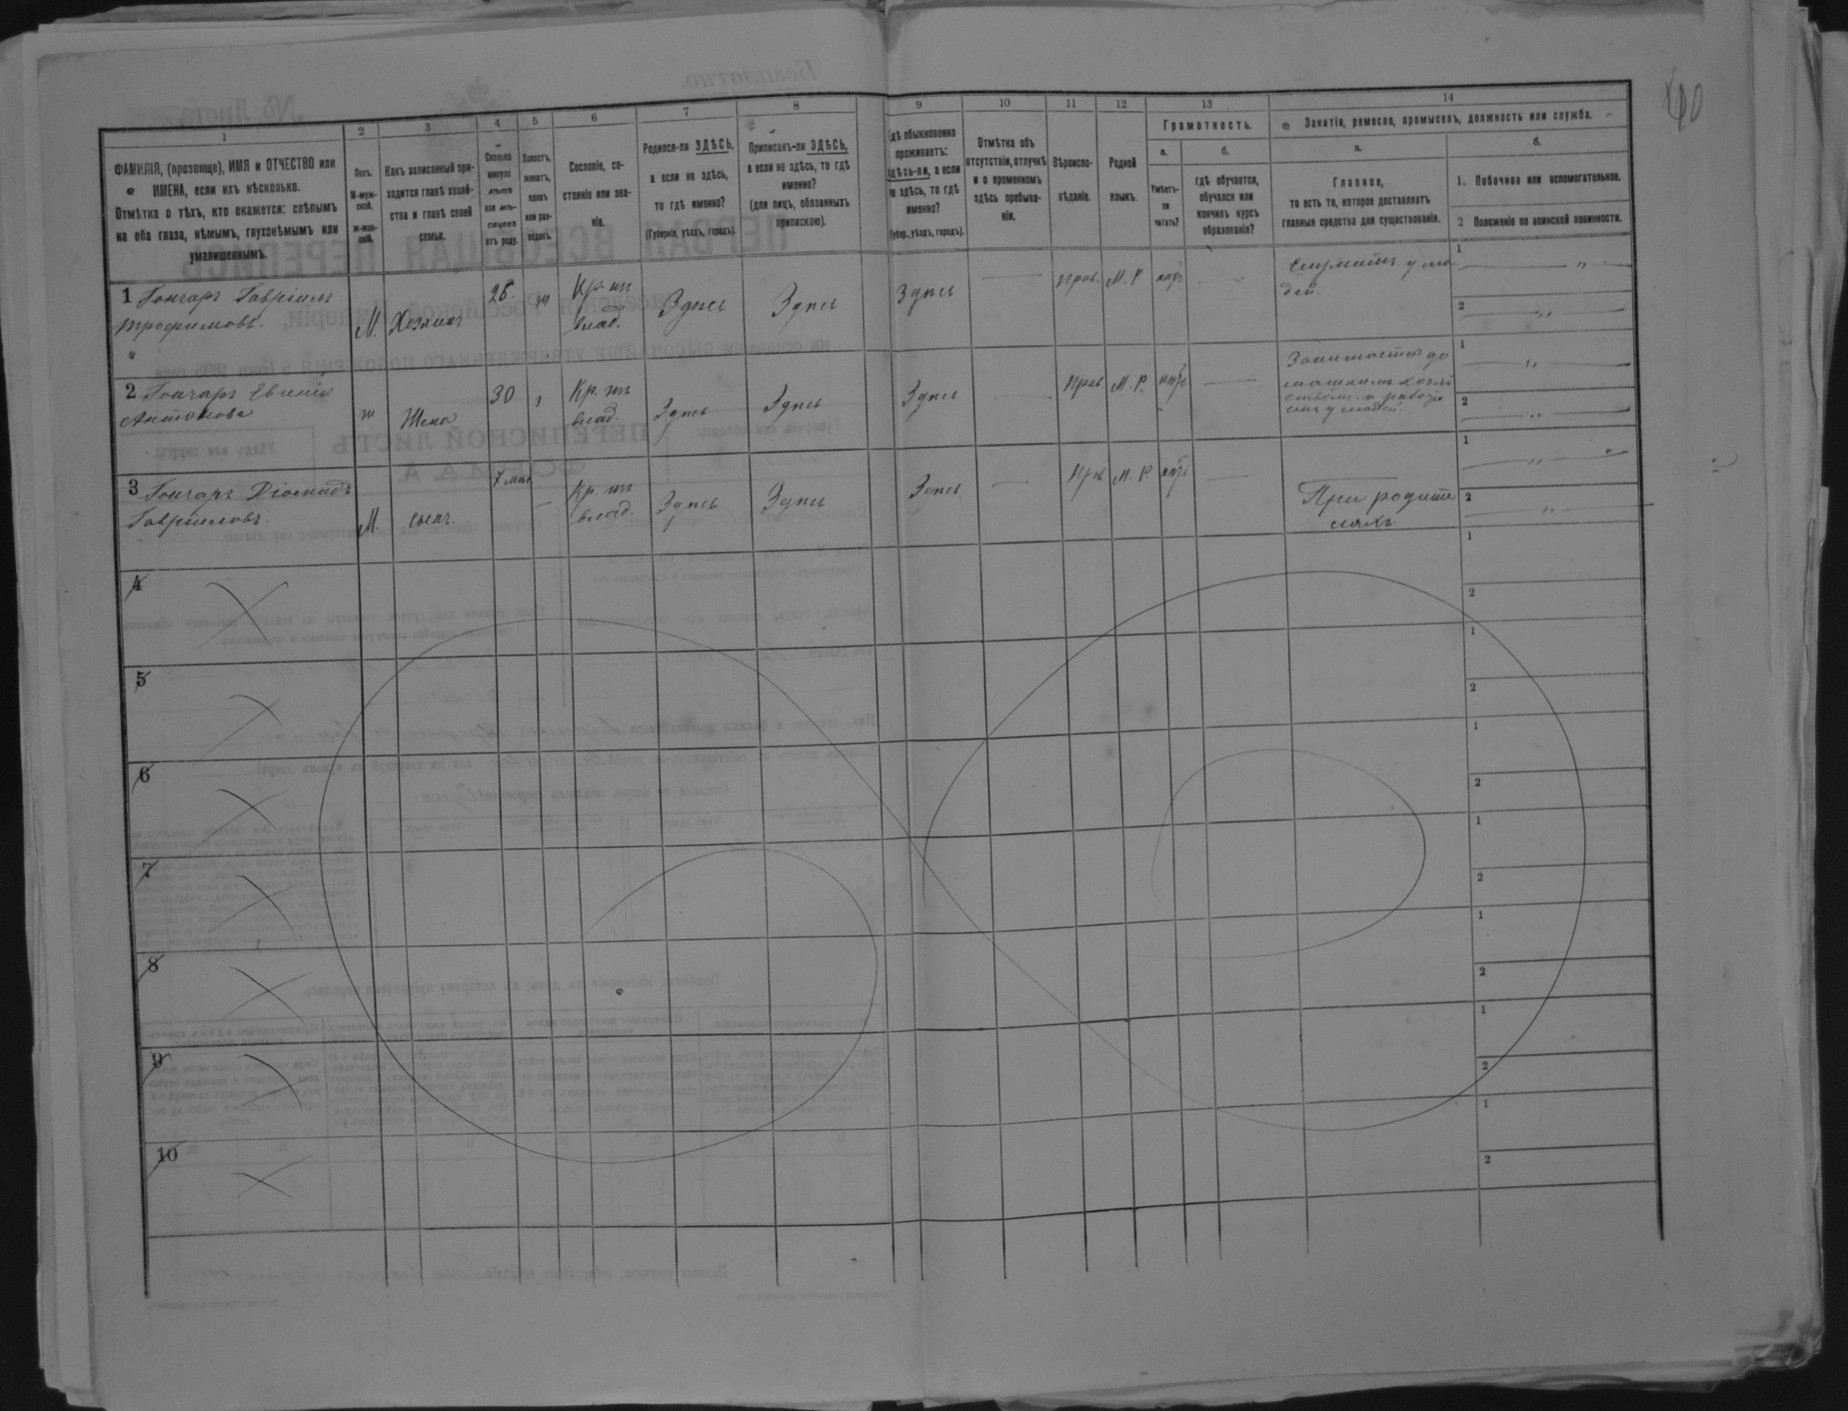 40
1 2 3 4 5 6 7 8 9 10 11 12 13 14
ФАМИЛІЯ, (прозвище), ИМЯ и ОТЧЕСТВО или
ИМЕНА, если ихъ нѣсколько.
Отмѣтка о тѣхъ, кто окажется: слѣпымъ
на оба глаза, нѣмымъ, глухонѣмымъ или
умалишеннымъ.
Полъ.
М-муж-
ской.
ж-жен-
скій.
Какъ записанный при-
ходится главѣ хозяй-
ства и главѣ своей
семьи.
Сколько
минуло
лѣтъ
или мѣ-
сяцевъ
отъ роду.
Холостъ,
женатъ,
вдовъ
или раз-
веденъ.
Сословіе, со-
стояніе или зва-
ніе.
Родился-ли ЗДѢСЬ,
а если не здѣсь,
то гдѣ именно?
(Губернія, уѣздъ, городъ).
Приписанъ-ли ЗДѢСЬ,
а если не здѣсь, то гдѣ
именно?
(для лицъ, обязанныхъ
припискою).
гдѣ обыкновенно
проживаетъ:
здѣсь-ли, а если
не здѣсь, то гдѣ
именно?
(Губер., уѣздъ, городъ).
Отмѣтка объ
отсутствіи, отлучкѣ
и о временномъ
здѣсь пребыва-
ніи.
Вѣроиспо-
вѣданіе.
Родной
языкъ.
Грамотность.
а.
Умѣетъ-
ли
читать?
б.
гдѣ обучается,
обучался или
кончилъ курсъ
образованія?
Занятія, ремесло, промыселъ, должность или служба.
а.
Главное,
то есть то, которое доставляетъ
главныя средства для существованія.
б.
1. Побочное или вспомогательное.
2 Положеніе по воинской повинности.
1 Гончаръ Гавріилъ
Трофимовъ. М. Хозяинъ 26. ж Кр. из влад. Здѣсь Здѣсь Здѣсь — Прав. М. Р. нѣтъ — Служитъ у лю
дей. 1 — „ — 2 — „ —
2 Гончаръ Евгенія
Антонова ж Жена 30 Кр. из влад. Здѣсь Здѣсь Здѣсь — Прав. М. Р. нѣтъ — 1 — „ — 2 — „ —
3 Гончаръ Діомидъ
Гавріиловъ. М. сынъ. 7 мѣс — Кр. из влад. Здѣсь Здѣсь Здѣсь — Прав. М. Р. нѣтъ — При родите
ляхъ. 1 — „ — 2 — „ —
4 1 2
5 1 2
6 1 2
7 1 2
8 1 2
9 1 2
10 1 2